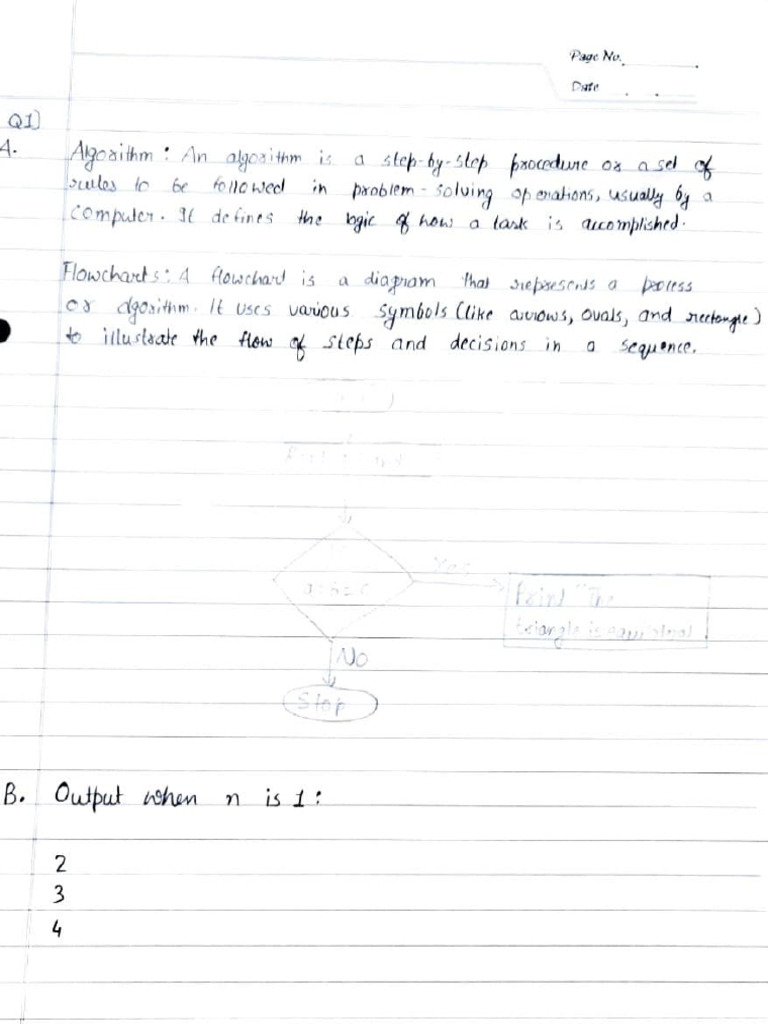 Page No.
Date
Q1)
A. Algorithm : An algorithm is a step-by-step procedure or a set of
rules to be followed in problem-solving operations, usually by a
computer. It defines the logic of how a task is accomplished.
Flowcharts: A flowchart is a diagram that represents a process
or algorithm. It uses various symbols (like arrows, ovals, and rectangle)
to illustrate the flow of steps and decisions in a sequence.
Yes
Print "The
triangle is
No
Stop
B. Output when n is 1 :
2
3
4